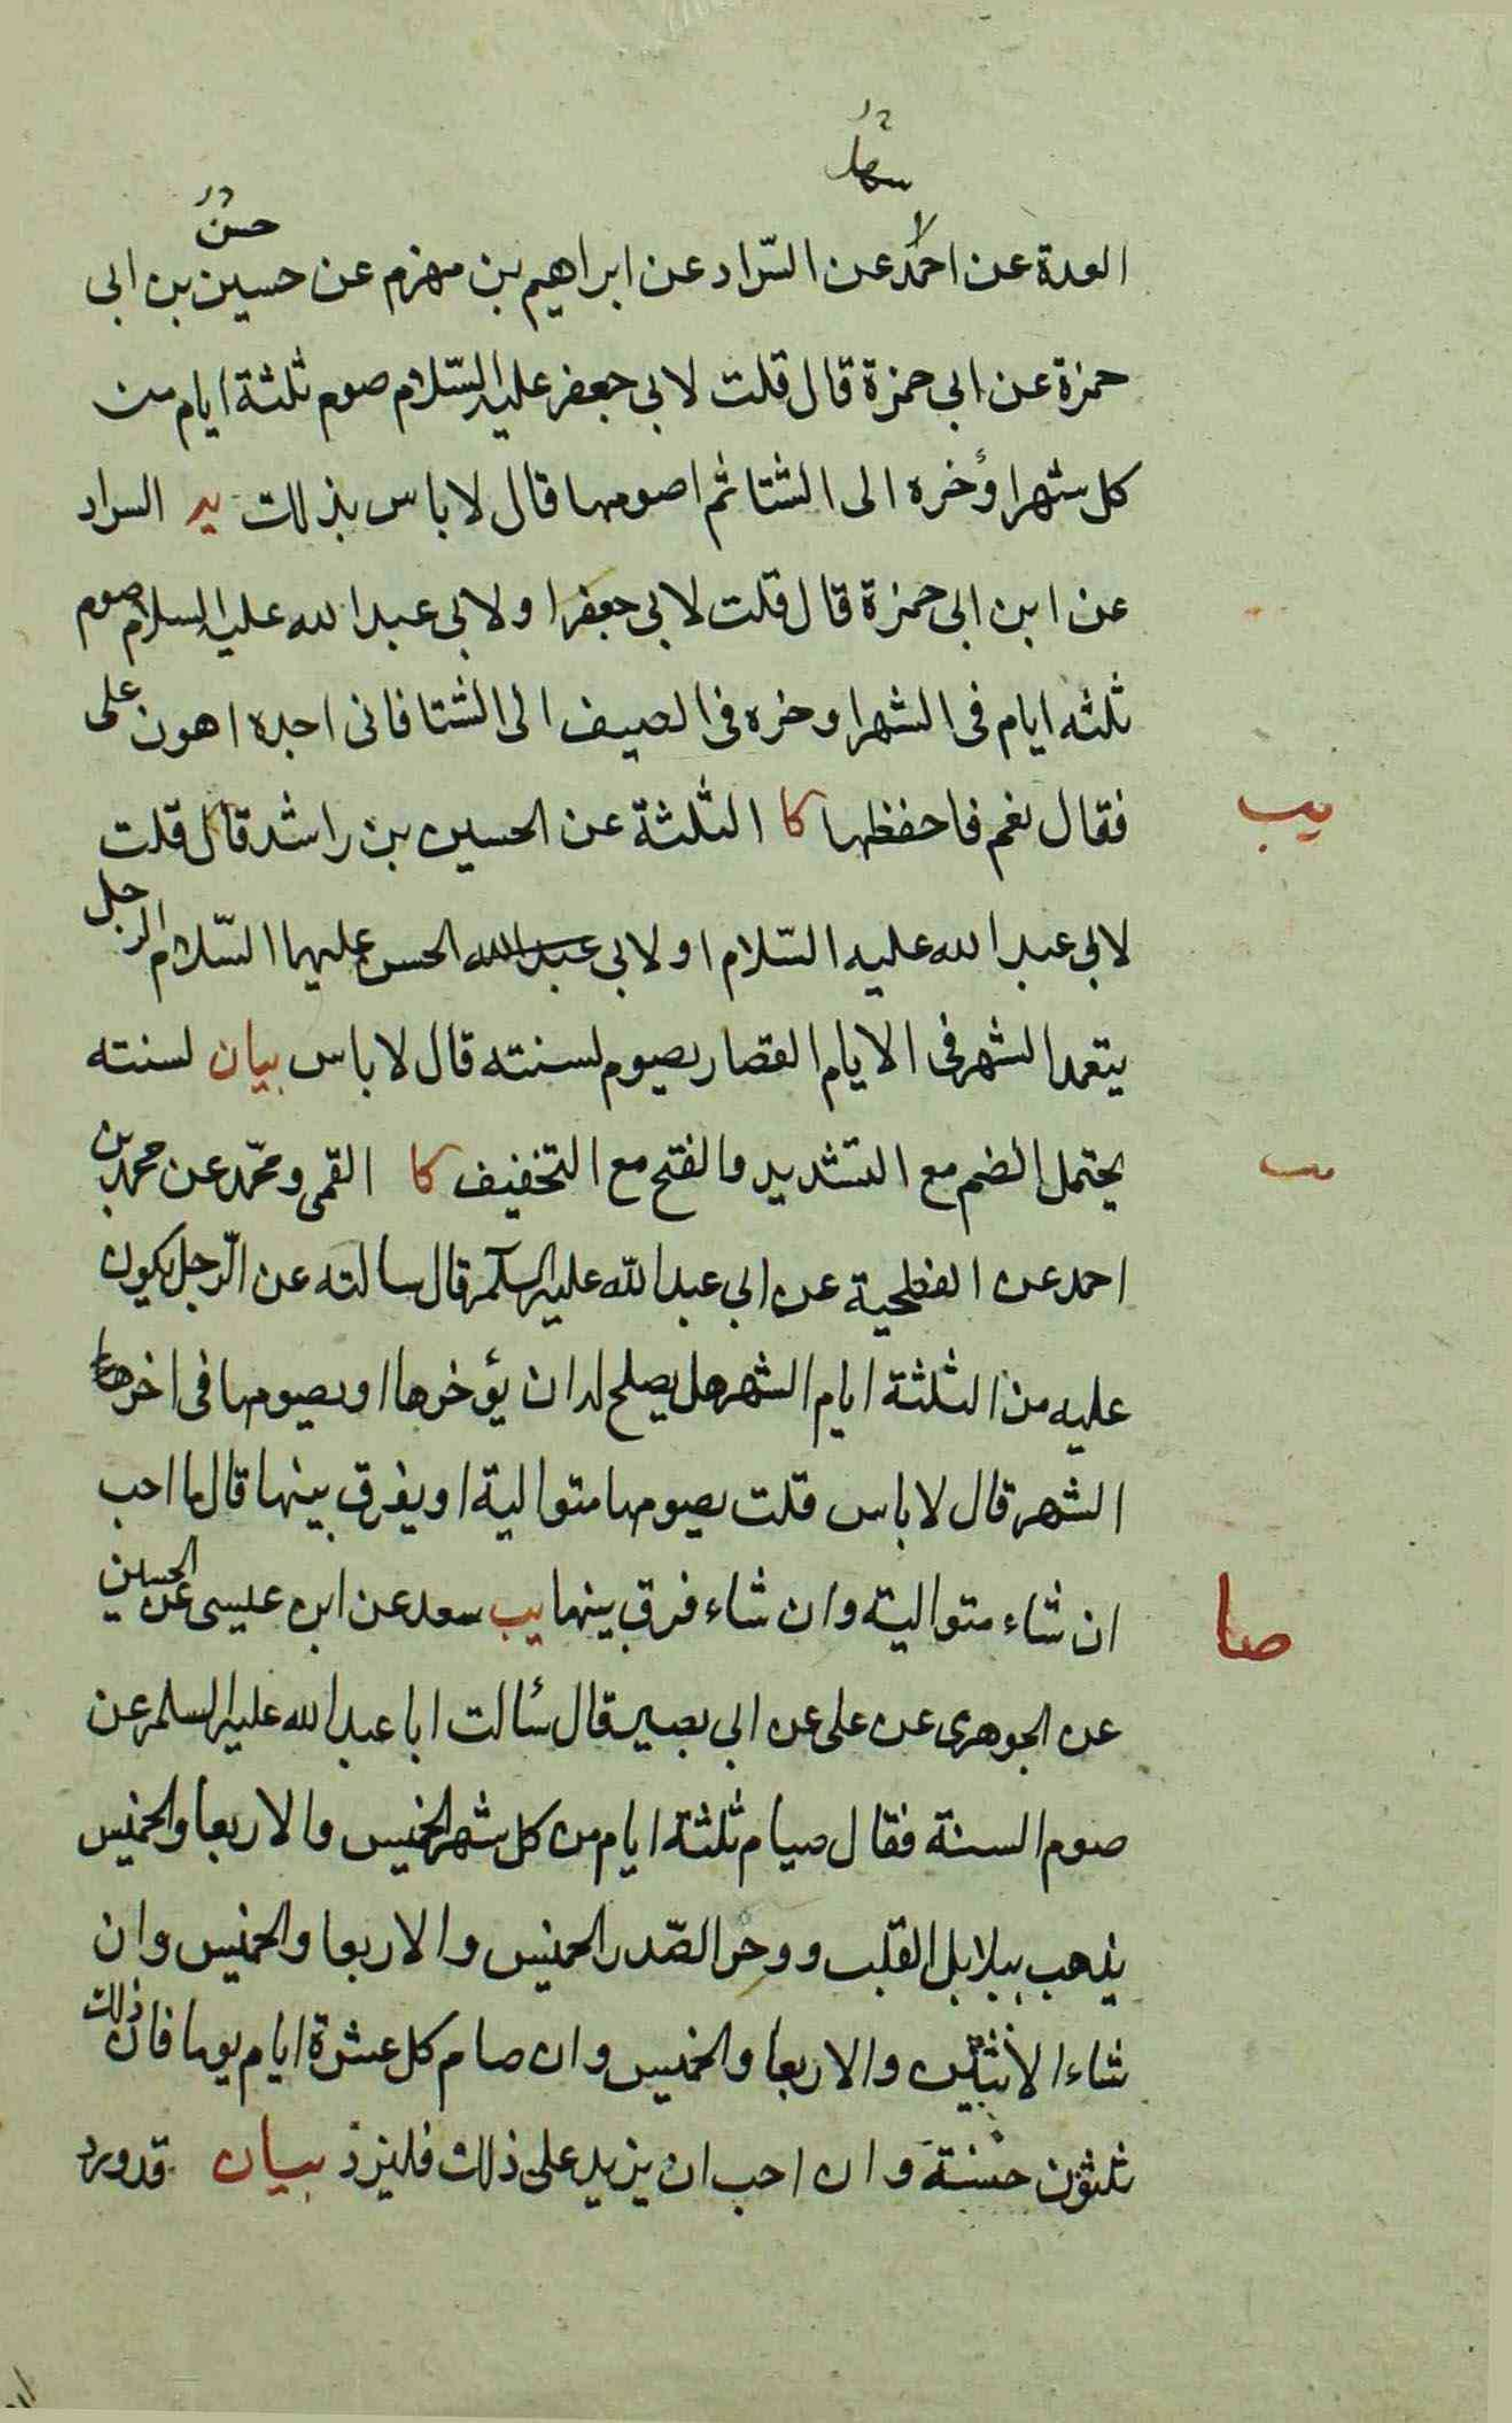 سهل
حسن
العدة عن احمد عن السّراد عن ابراهيم بن مهزم عن حسين بن ابى
حمزة عن ابى حمزة قال قلت لابى جعفر عليه السّلام صوم ثلثة ايام من
كل شهر اؤخره الى الشتا ثم اصومها قال لا باس بذلك يه السراد
عن ابن ابى حمزة قال قلت لابى جعفر او لابى عبد الله عليه السلام صوم
ثلثه ايام فى الشهر اوخره فى الصيف الى الشتا فانى اجده اهون على
فقال نعم فاحفظها كا الثلثة عن الحسين بن راشد قال قلت
يب
لابى عبد الله عليه السّلام او لابى عبد الله الحسن عليهما السّلام الرجل
يتعمد الشهر فى الايام القصار يصوم لسنته قال لا باس بيان لسنته
يحتمل الضم مع التشديد والفتح مع التخفيف كا القمى ومحمّد عن محمد بن
احمد عن الفطحية عن ابى عبد الله عليه السلم قال سالته عن الرّجل يكون
عليه من الثلثة ايام الشهر هل يصلح له ان يؤخرها او يصومها فى اخرها
الشهر قال لا باس قلت يصومها متوالية او يفرق بينها قال ما احب
ان شاء متوالية وان شاء فرق بينها يب سعد عن ابن عيسى عن الحسين
صا
عن الجوهرى عن على عن ابى بصير قال سئالت ابا عبد الله عليه السلم عن
صوم السنة فقال صيام ثلثة ايام من كل شهر الخميس والاربعا والخميس
يذهب ببلابل القلب ووحر الصّدر الخميس والاربعا والخميس وان
شاء الاثنين والاربعا والخميس وان صام كل عشرة ايام يوما فان ذلك
ثلثون حسنة وان احب ان يزيد على ذلك فليزد بيان قد ورد